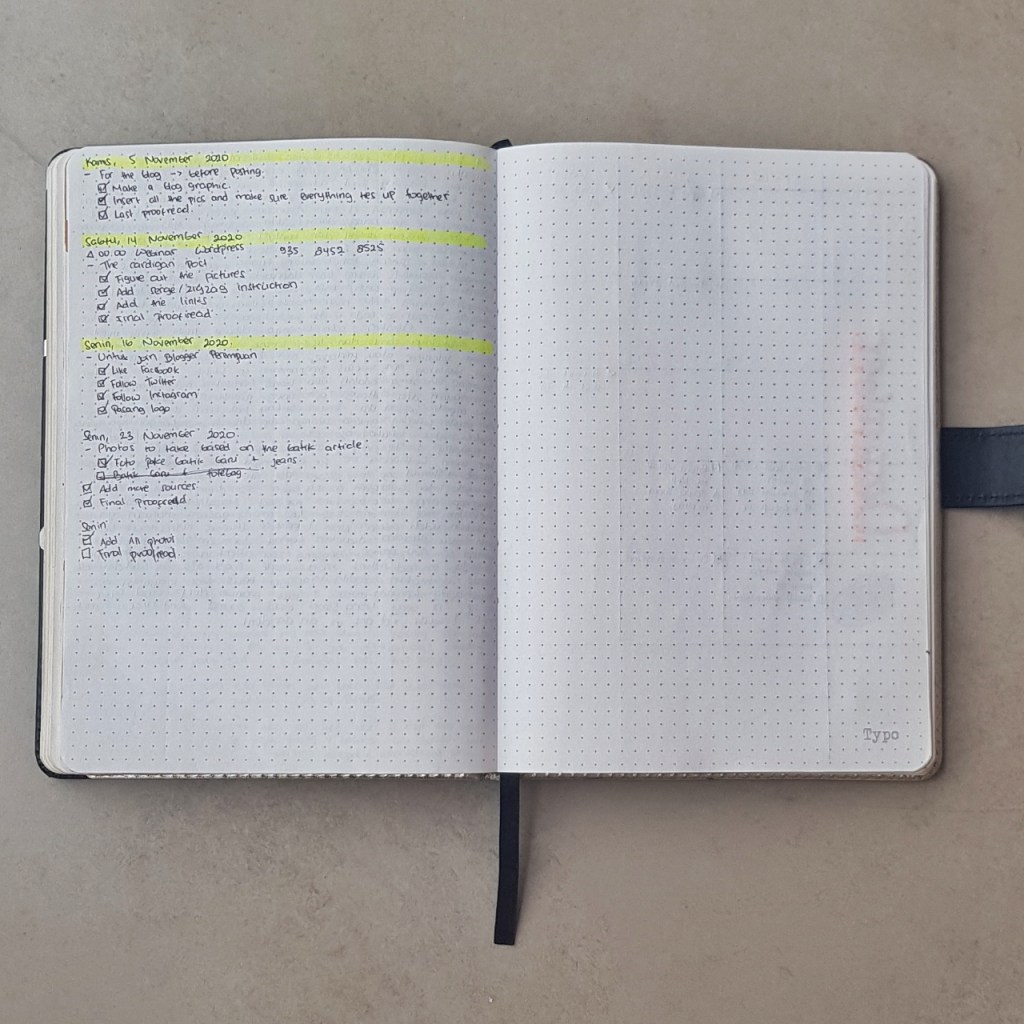 Kamis, 5 November 2020
- For the blog -> before posting.
Make a blog graphic.
Insert all the pics and make sure everything ties up together
Last proofread.
Sabtu, 14 November 2020
00.00 Webinar Wordpress 935 8452 8525
- The cardigan post
Figure out the pictures
Add serge/zigzag instruction
Add the links
Final proofread
Senin, 16 November 2020.
- Untuk join Blogger Perempuan
Like Facebook
Follow Twitter
Follow Instagram
Pasang logo
Senin, 23 November 2020.
- Photos to take based on the batik article.
Foto pake batik baru + jeans
Batik baru + totebag
Add more sources
Final Proofread
Senin
Add all photos
Final proofread
Typo